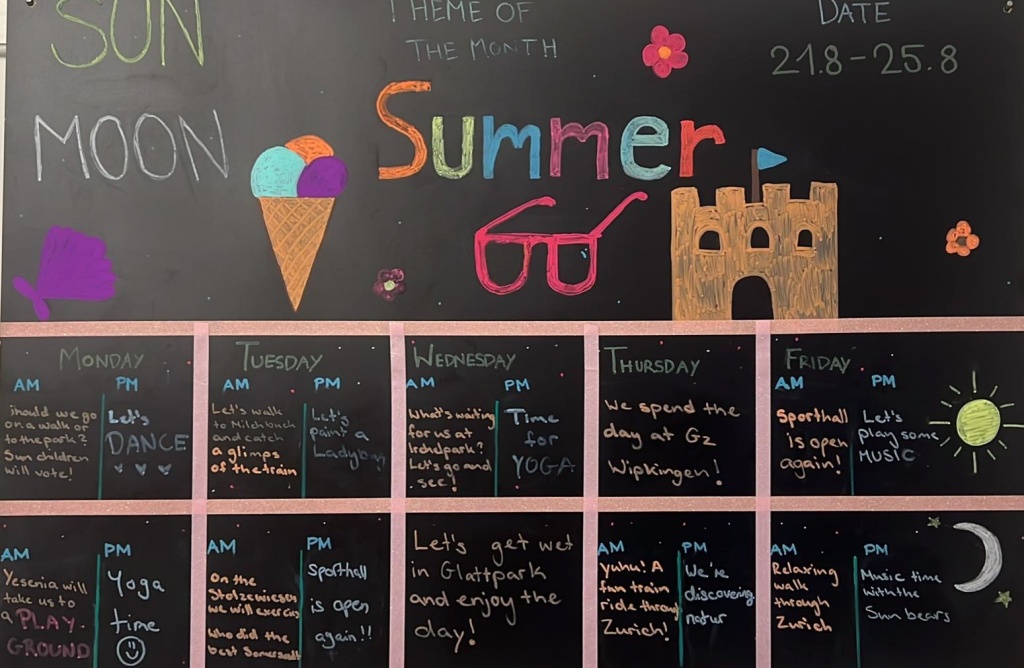 SUN
THEME OF
THE MONTH
DATE
21.8-25.8
MOON
Summer
MONDAY
AM
PM
should we go
on a walk or
to the park?
Sun children
will vote!
Let's
DANCE
TUESDAY
AM
PM
Let's walk
to Milchbuch
and catch
a glimps
of the train
Let's
paint a
Ladybug
WEDNESDAY
AM
PM
What's waiting
for us at
Irchelpark?
Let's go and
see!
Time
for
YOGA
THURSDAY
We spend the
day at GZ
Wipkingen!
FRIDAY
AM
PM
Sporthall
is open
again!
Let's
play some
MUSIC
AM
PM
Yesenia will
take us to
a PLAY
GROUND
Yoga
time
AM
PM
On the
Stolzewiese
we will exercise
Who did the
best Somersault
Sporthall
is open
again!!
Let's get wet
in Glattpark
and enjoy the
day!
AM
PM
yuhu! A
fun train
ride through
Zurich!
We're
discovering
natur
AM
PM
Relaxing
walk
through
Zurich
Music time
with the
Sun bears